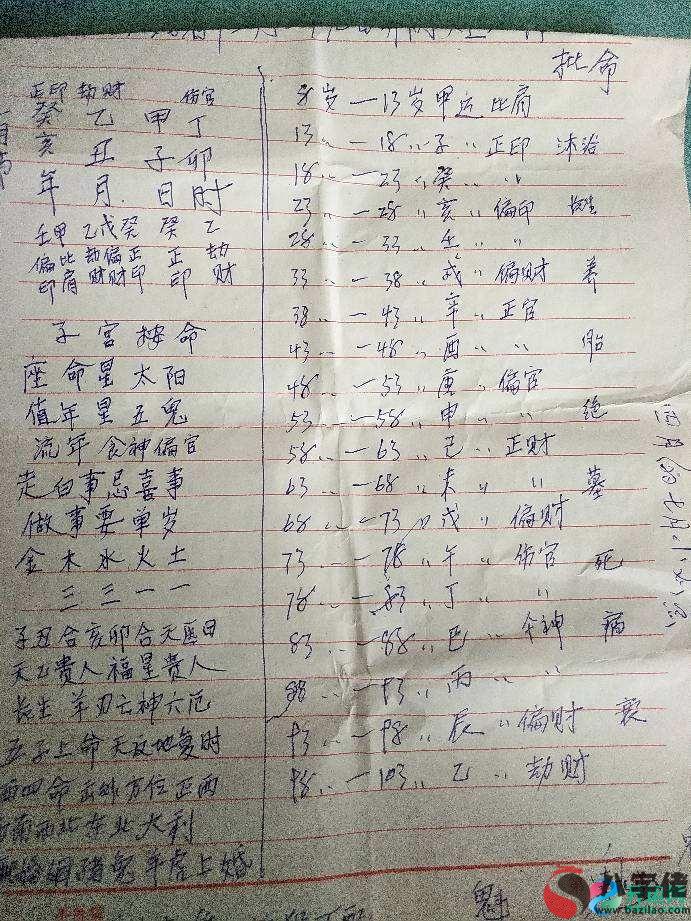 批命
正印 劫财 伤官
癸 乙 甲 丁
亥 丑 子 卯
年 月 日 时
壬甲 乙戊癸 癸 乙
偏比 劫偏正 正 劫
印肩 财财印 印 财
子宫按命
座命星太阳
值年星五鬼
流年食神偏官
走白事忌喜事
做事要单岁
金木水火土
三三一一
子丑合亥卯合天
天乙贵人福星贵人
长生羊刃亡神六厄
五子上命天反地复时
西四命 方位正西
南西北东北大利
婚 猪兔羊虎上婚
8岁一13岁甲运比肩
13〃一18〃子〃正印 沐浴
18〃一23〃癸〃〃
23〃一28〃亥〃偏印 长生
28〃一33〃壬〃〃
33〃一38〃戌〃偏财 养
38〃一43〃辛〃正官
43〃一48〃酉〃〃 胎
48〃一53〃庚〃偏官
53〃一58〃申〃〃 绝
58〃一63〃己〃正财
63〃一68〃未〃〃 墓
68〃一73〃戊〃偏财
73〃一78〃午〃伤官 死
78〃一83〃丁〃〃
83〃一88〃巳〃食神 病
88〃一93〃丙〃〃
93〃一98〃辰〃偏财 衰
98〃一103〃乙〃劫财
魁
八字佬
www.bazilao.com